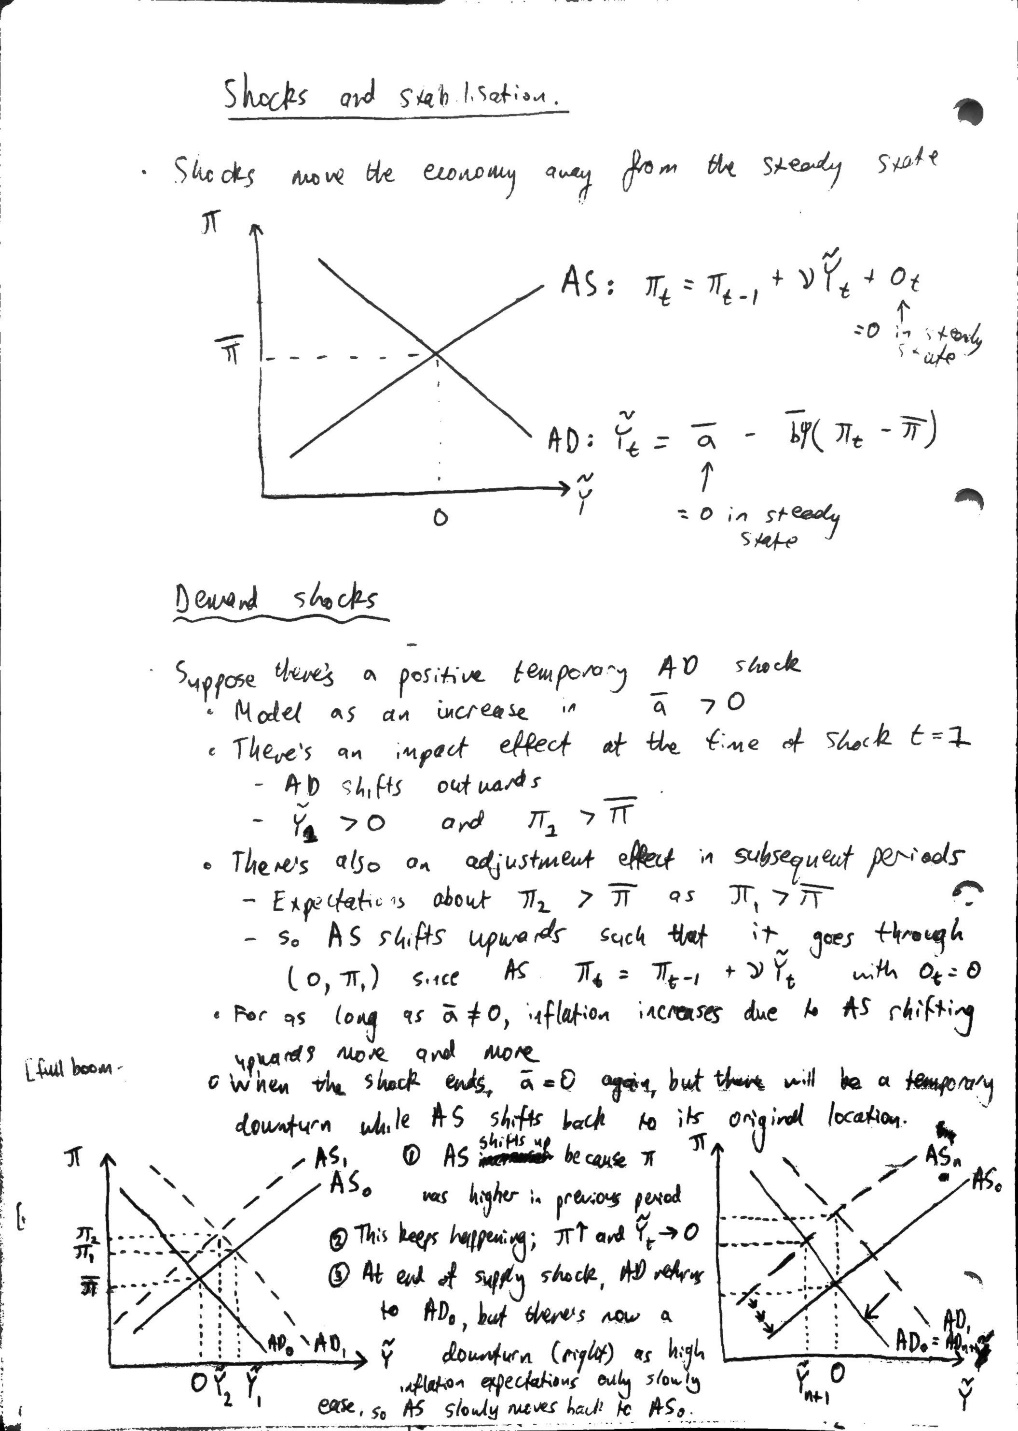 Shocks and stabilisation.
· Shocks move the economy away from the steady state
π
AS: π_t = π_{t-1} + νỸ_t + o_t
↑
=0 in steady
state
π̄
AD: Ỹ_t = ā - b̄φ(π_t - π̄)
↑
Ỹ
0
= 0 in steady
state
Demand shocks
· Suppose there's a positive temporary AD shock
• Model as an increase in ā > 0
• There's an impact effect at the time of shock t=1
- AD shifts outwards
- Ỹ_1 > 0 and π_1 > π̄
• There's also an adjustment effect in subsequent periods
- Expectations about π_2 > π̄ as π_1 > π̄
- so AS shifts upwards such that it goes through
(0, π_1) since AS π_t = π_{t-1} + νỸ_t with o_t = 0
• For as long as ā ≠ 0, inflation increases due to AS shifting
upwards more and more
[full boom-
• When the shock ends, ā = 0 again, but there will be a temporary
downturn while AS shifts back to its original location.
π
AS_1
AS_0
π_2
π_1
π̄
AD_0
AD_1
Ỹ
0 Ỹ_2 Ỹ_1
① AS shifts up because π
was higher in previous period
② This keeps happening; π↑ and Ỹ_t → 0
③ At end of supply shock, AD returns
to AD_0, but there's now a
downturn (right) as high
inflation expectations only slowly
ease, so AS slowly moves back to AS_0.
π
AS_n
AS_0
AD_1
AD_0 = AD_{n+1}
Ỹ_{n+1} 0
Ỹ